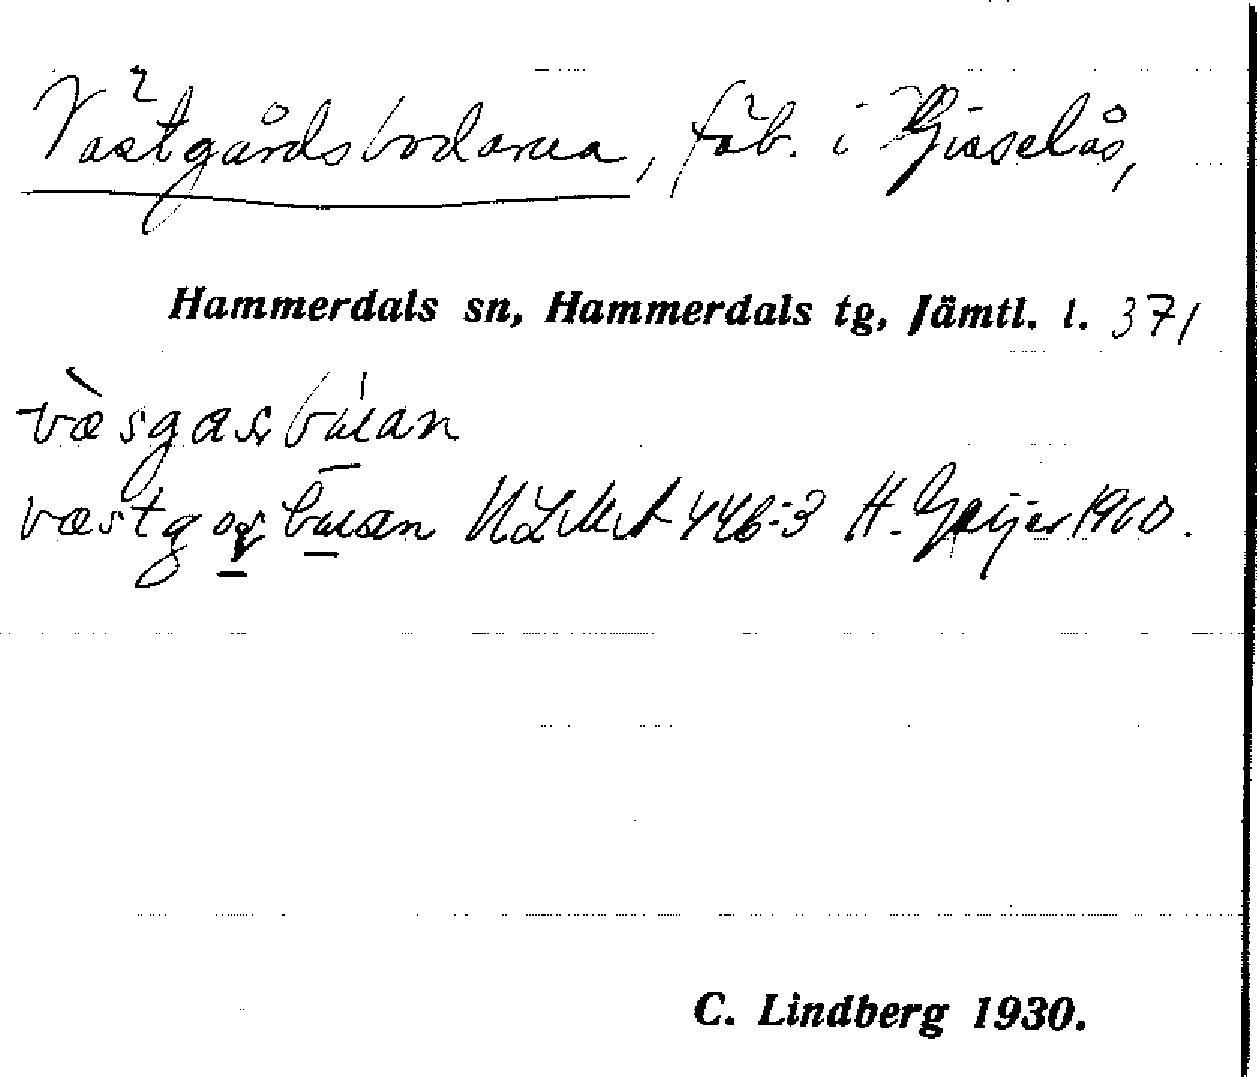 Västgårdsbodarna, fäb. i Gisselås,
Hammerdals sn, Hammerdals tg, Jämtl. l. 371
væsgasbuan
væstgɑsbuan ULMA 446:3 H. Geijer 1900.
C. Lindberg 1930.